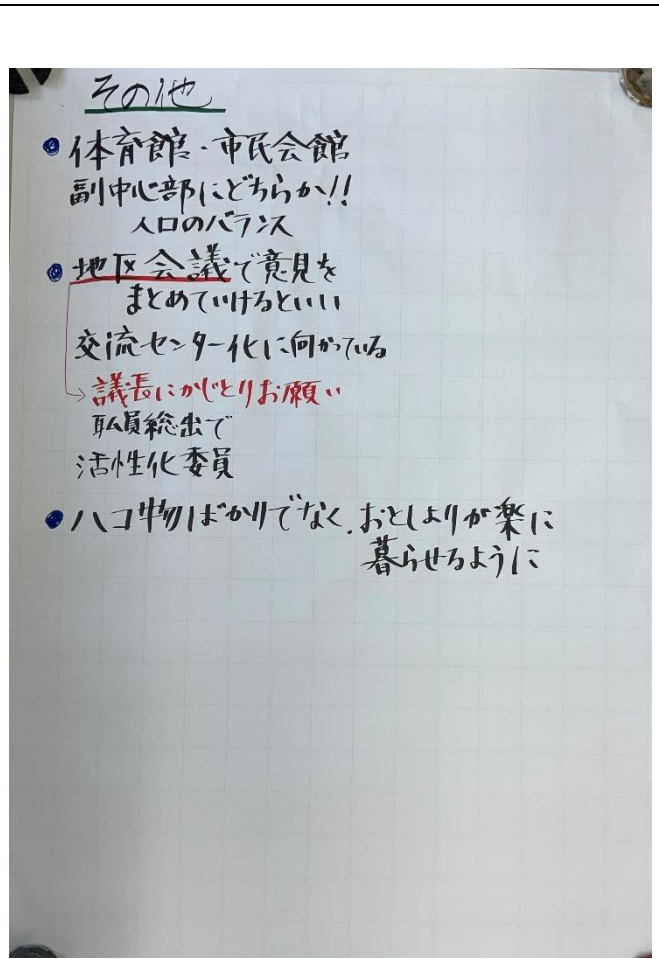 その他
体育館・市民会館
副中心部にどちらか!!
人口のバランス
地区会議で意見を
まとめていけるといい
交流センター化に向かっている
議長にかじとりお願い
職員総出で
活性化委員
ハコ物ばかりでなく、おとしよりが楽に
暮らせるように